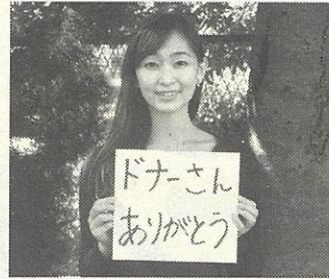 ドナーさん
ありがとう